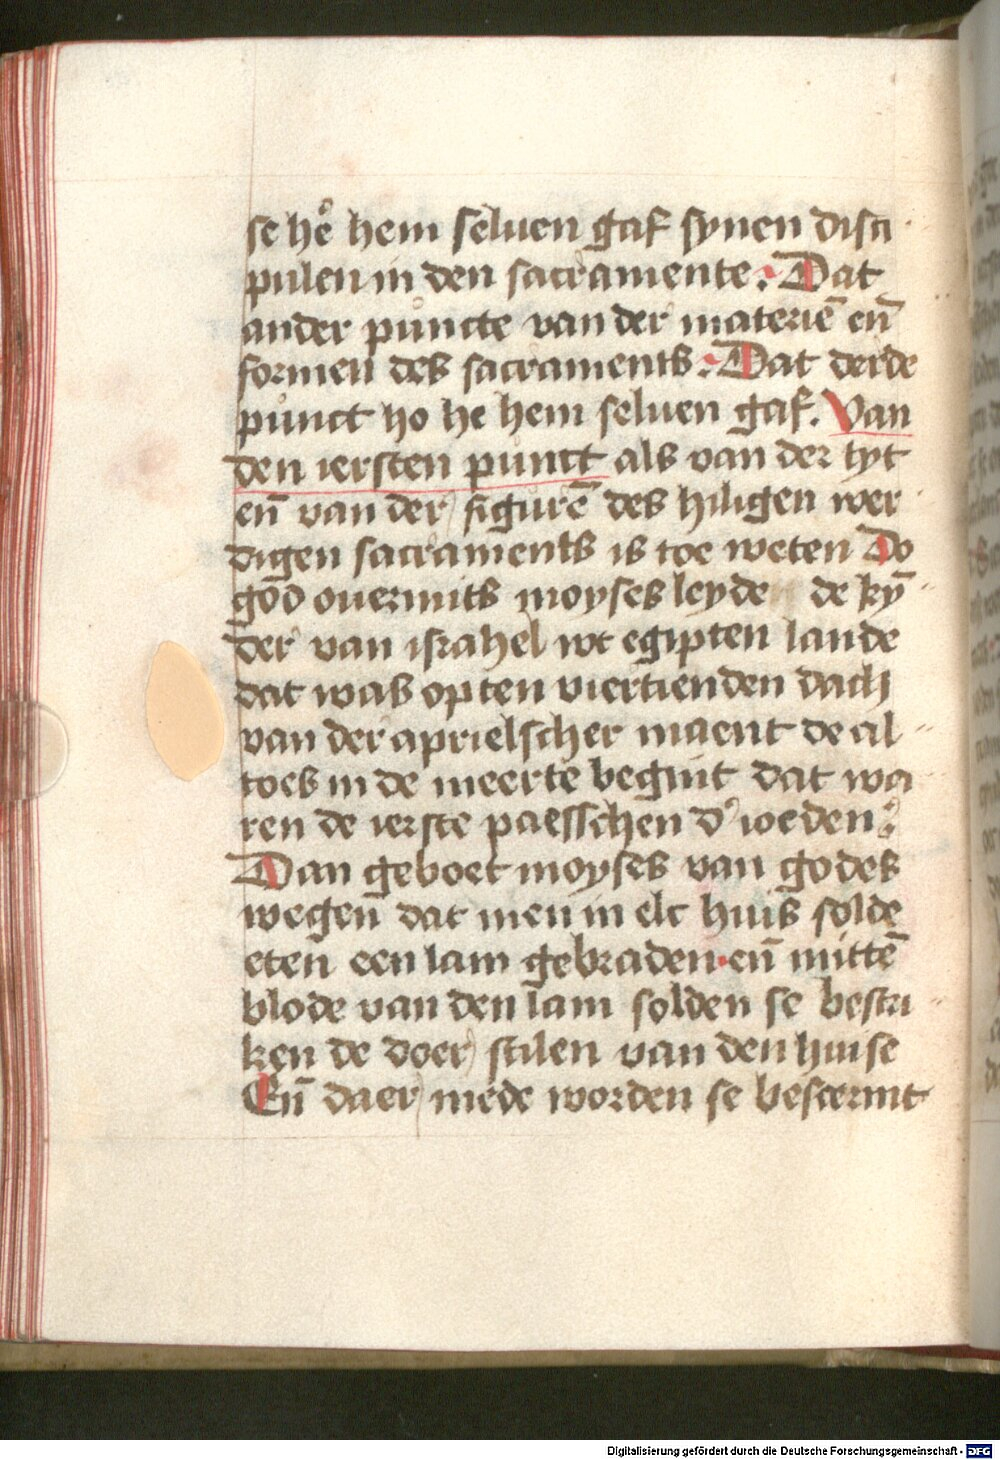 se he͛ hem seluen gaf synen disci
pulen in den sacramente. Dat
ander puncte van der materiē en̄
formen des sacraments. Dat derde
punct ho he hem seluen gaf. Van
den iersten punct als van der tyt
en̄ van der figurē des hiligen wer
digen sacraments is toe weten Do
god ouermits moyses leyde de kȳ
der van israhel wt egipten lande
dat was op ten viertienden dach
van der aprielscher maent de al
toes in de meerte begint dat wa
ren de ierste paesschen d' ioeden.
Dan geboet moyses van godes
wegen dat men in elc huis solde
eten een lam gebraden. en̄ mittē
blode van den lam solden se bestri
ken de doer stilen van den huise
En̄ daer mede worden se bescermt
Digitalisierung gefördert durch die Deutsche Forschungsgemeinschaft - DFG